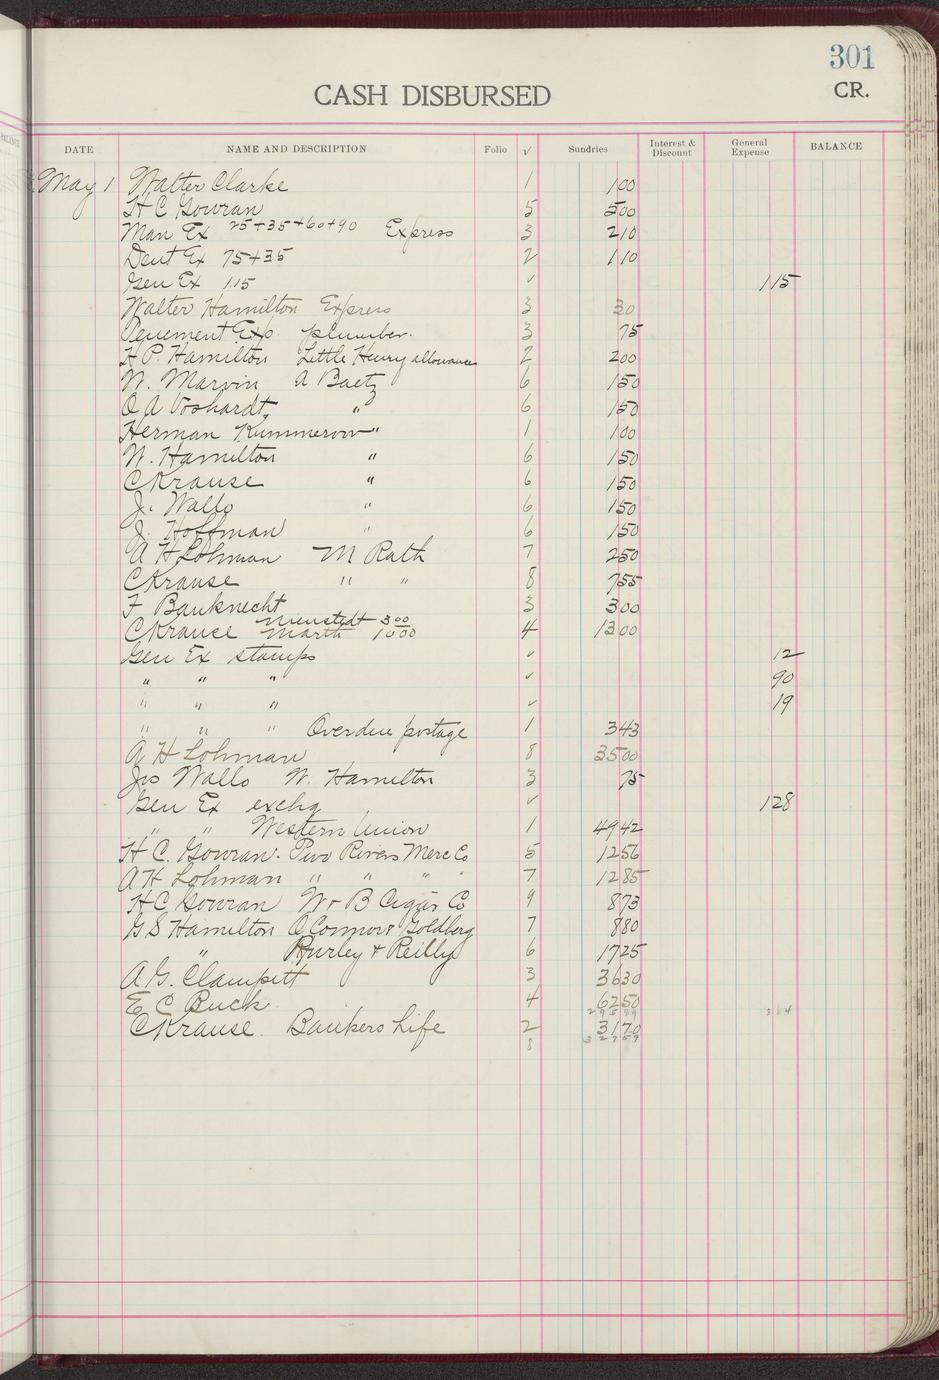 301
CASH DISBURSED CR.
DATE NAME AND DESCRIPTION Folio ✓ Sundries Interest & Discount General Expense BALANCE
May 1 Walter Clarke 1 1 00
H C Gowran 5 5 00
Man Ex 25+35+60+90 Express 3 2 10
Dent Ex 75+35 2 1 10
Gen Ex 115 ✓ 1 15
Walter Hamilton Express 3 30
Tenement Exp. plumber. 3 75
H P. Hamilton Little Henry allowance 2 2 00
W. Marvin A Baetz 6 1 50
O A Voshardt " 6 1 50
Herman Kummerow " 1 1 00
W. Hamilton " 6 1 50
C Krause " 6 1 50
J. Wallo " 6 1 50
J. Hoffman " 6 1 50
A H Lohman M Rath 7 2 50
C Krause " " 8 7 55
F Bauknecht 3 3 00
C Krause Nienstedt 3 00 Marth 10 00 4 13 00
Gen Ex stamps ✓ 12
" " " ✓ 90
" " " ✓ 19
" " " Overdue postage 1 3 43
A H Lohman 8 35 00
Jos Wallo W. Hamilton 3 75
Gen Ex exchg ✓ 1 28
" " Western Union 1 49 42
H C. Gowran. Two Rivers Merc Co 5 12 56
A H Lohman " " " " 7 12 85
H C Gowran W & B Cigar Co 9 8 73
G S Hamilton O Connor & Goldberg 7 8 80
" Hurley & Reilly 6 17 25
A. G. Clampitt 3 36 30
E C Buck 4 62 50
295 89 3 64
C Krause Bankers Life 2 31 70
8 327 59